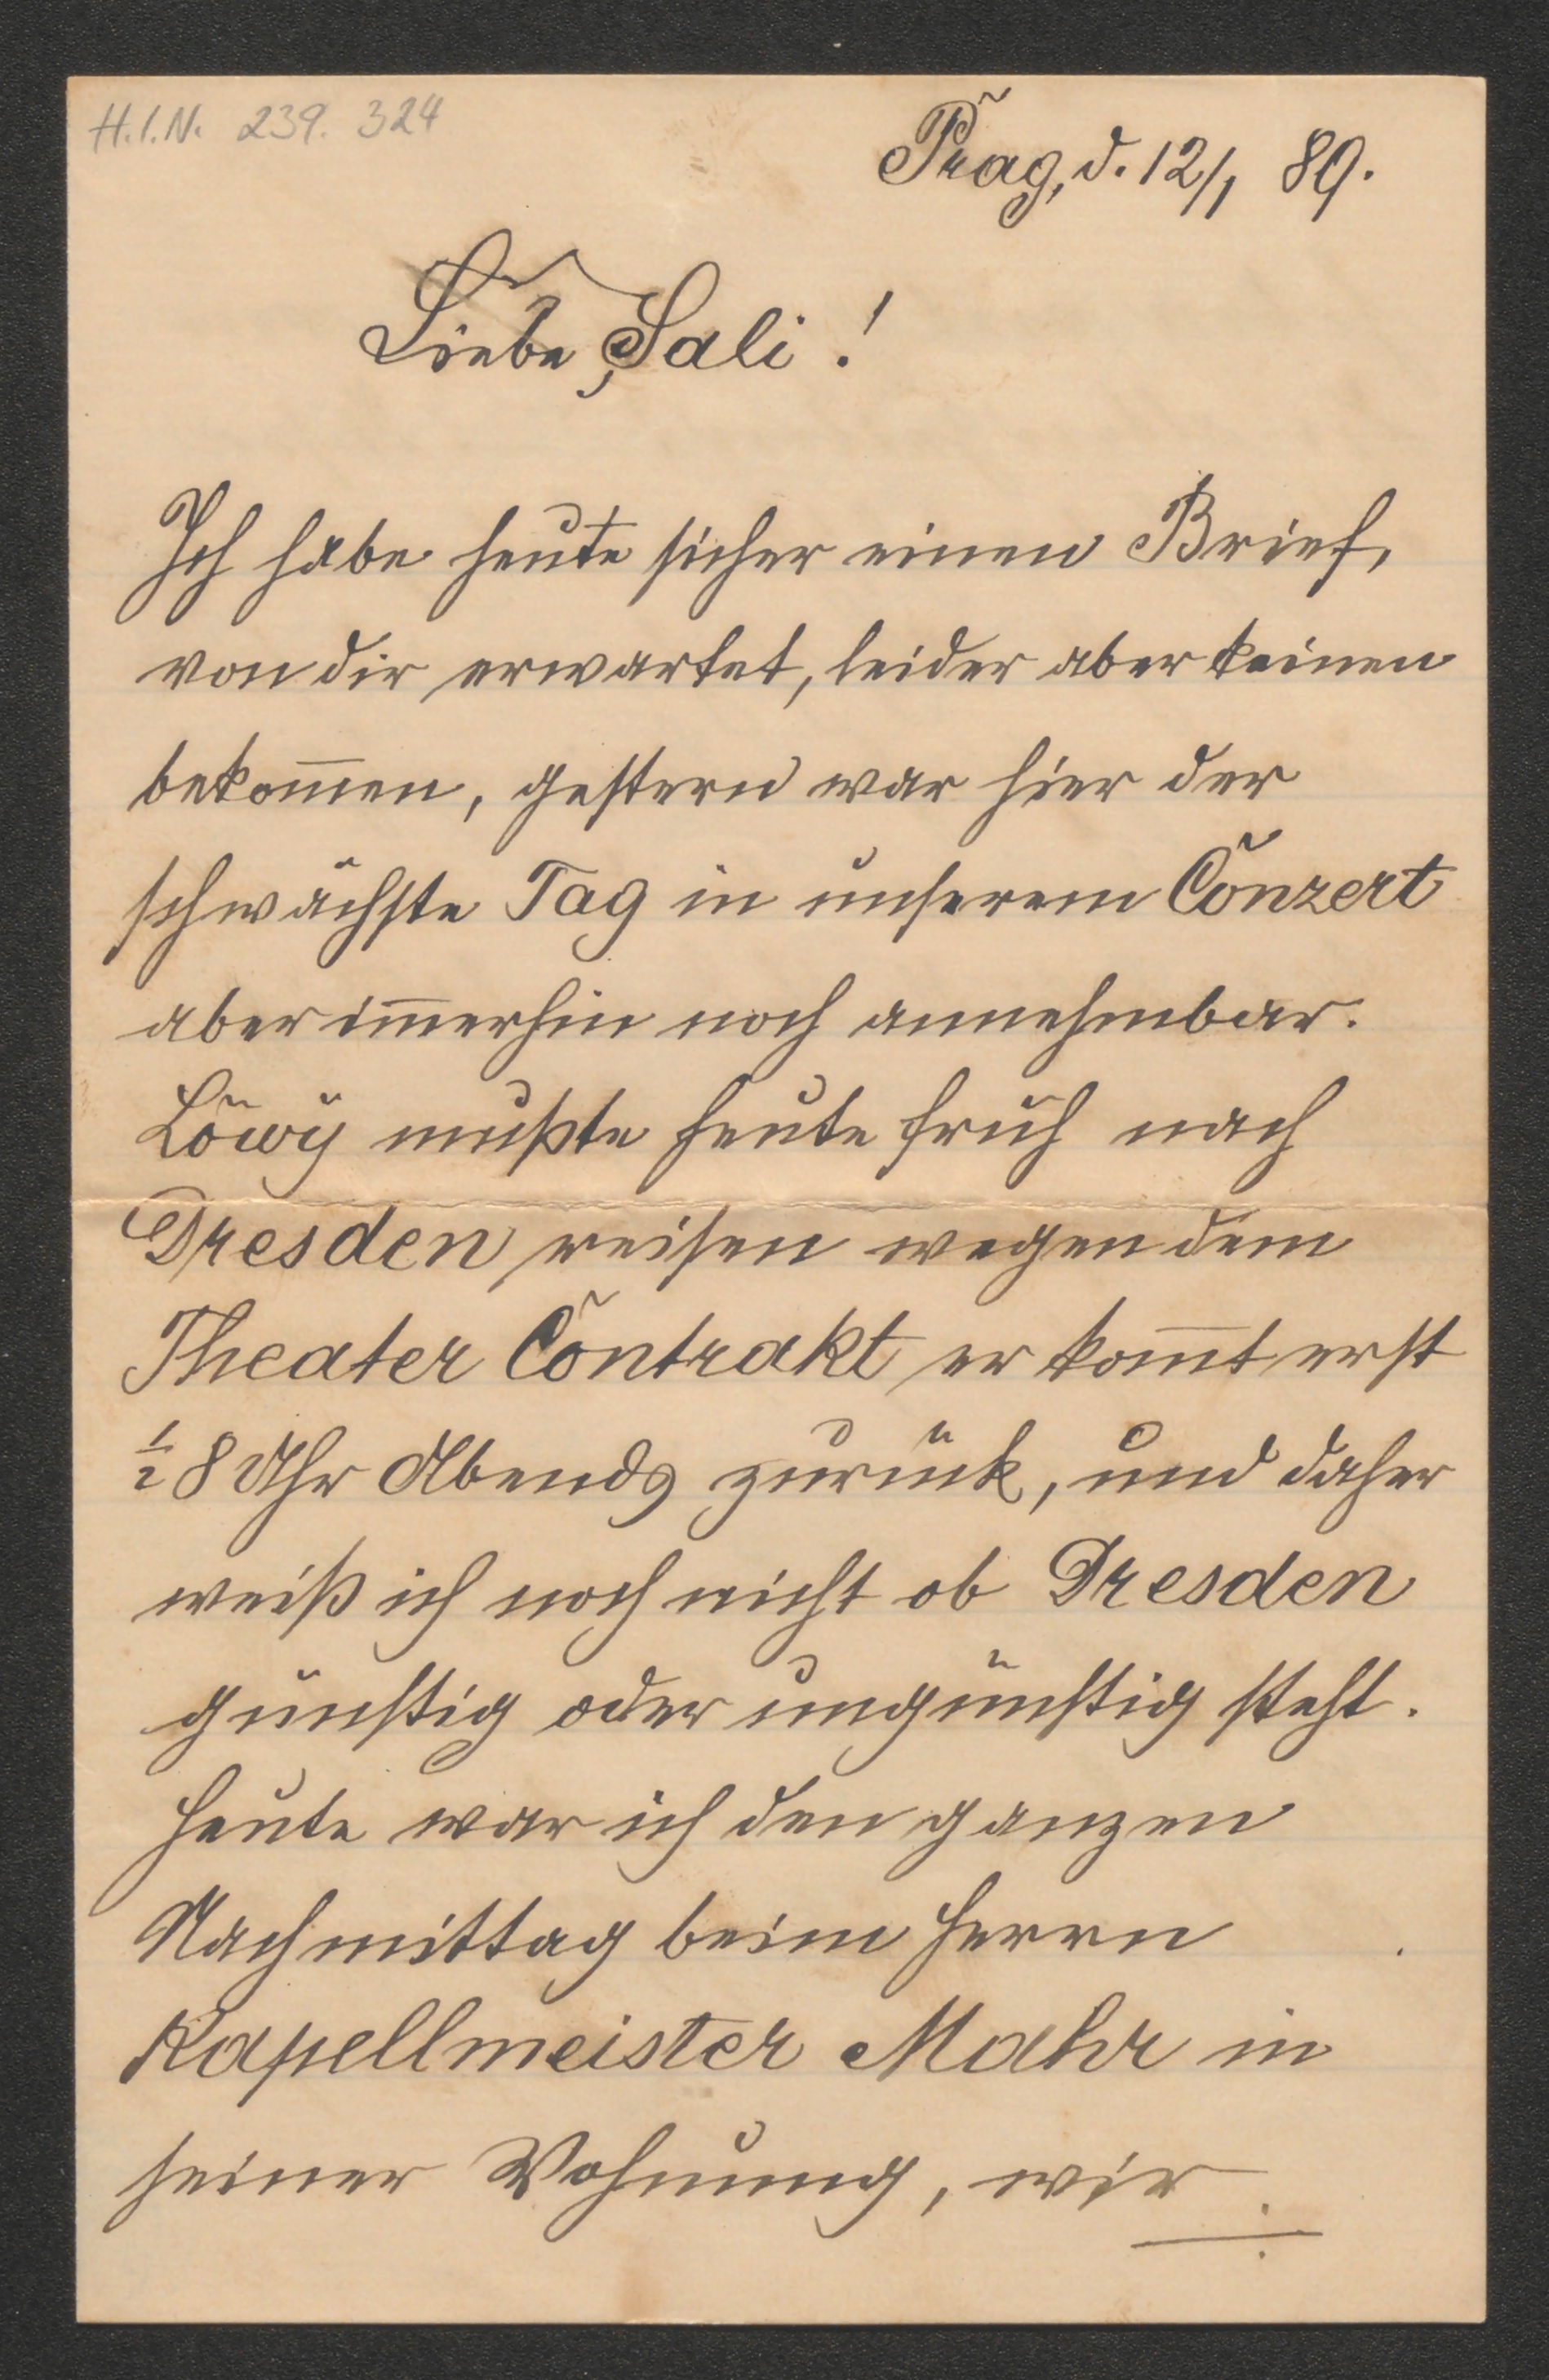 H.I.N. 239.324
Prag, d. 12/1 89.
Liebe Sali!
Ich habe heute sicher einen Brief,
von dir erwartet, leider aber keinen
bekom̄en, gestern war hier der
schwächste Tag in unserem Conzert
aber im̄erhin noch annehmbar.
Löwÿ mußte heute früh nach
Dresden reisen wegen dem
Theater Contrakt er kom̄t erst
½ 8 Uhr Abends zurück, und daher
weiß ich noch nicht ob Dresden
günstig oder ungünstig steht.
Heute war ich den ganzen
Nachmittag beim Herrn
Kapellmeister Mahr in
seiner Wohnung, wir